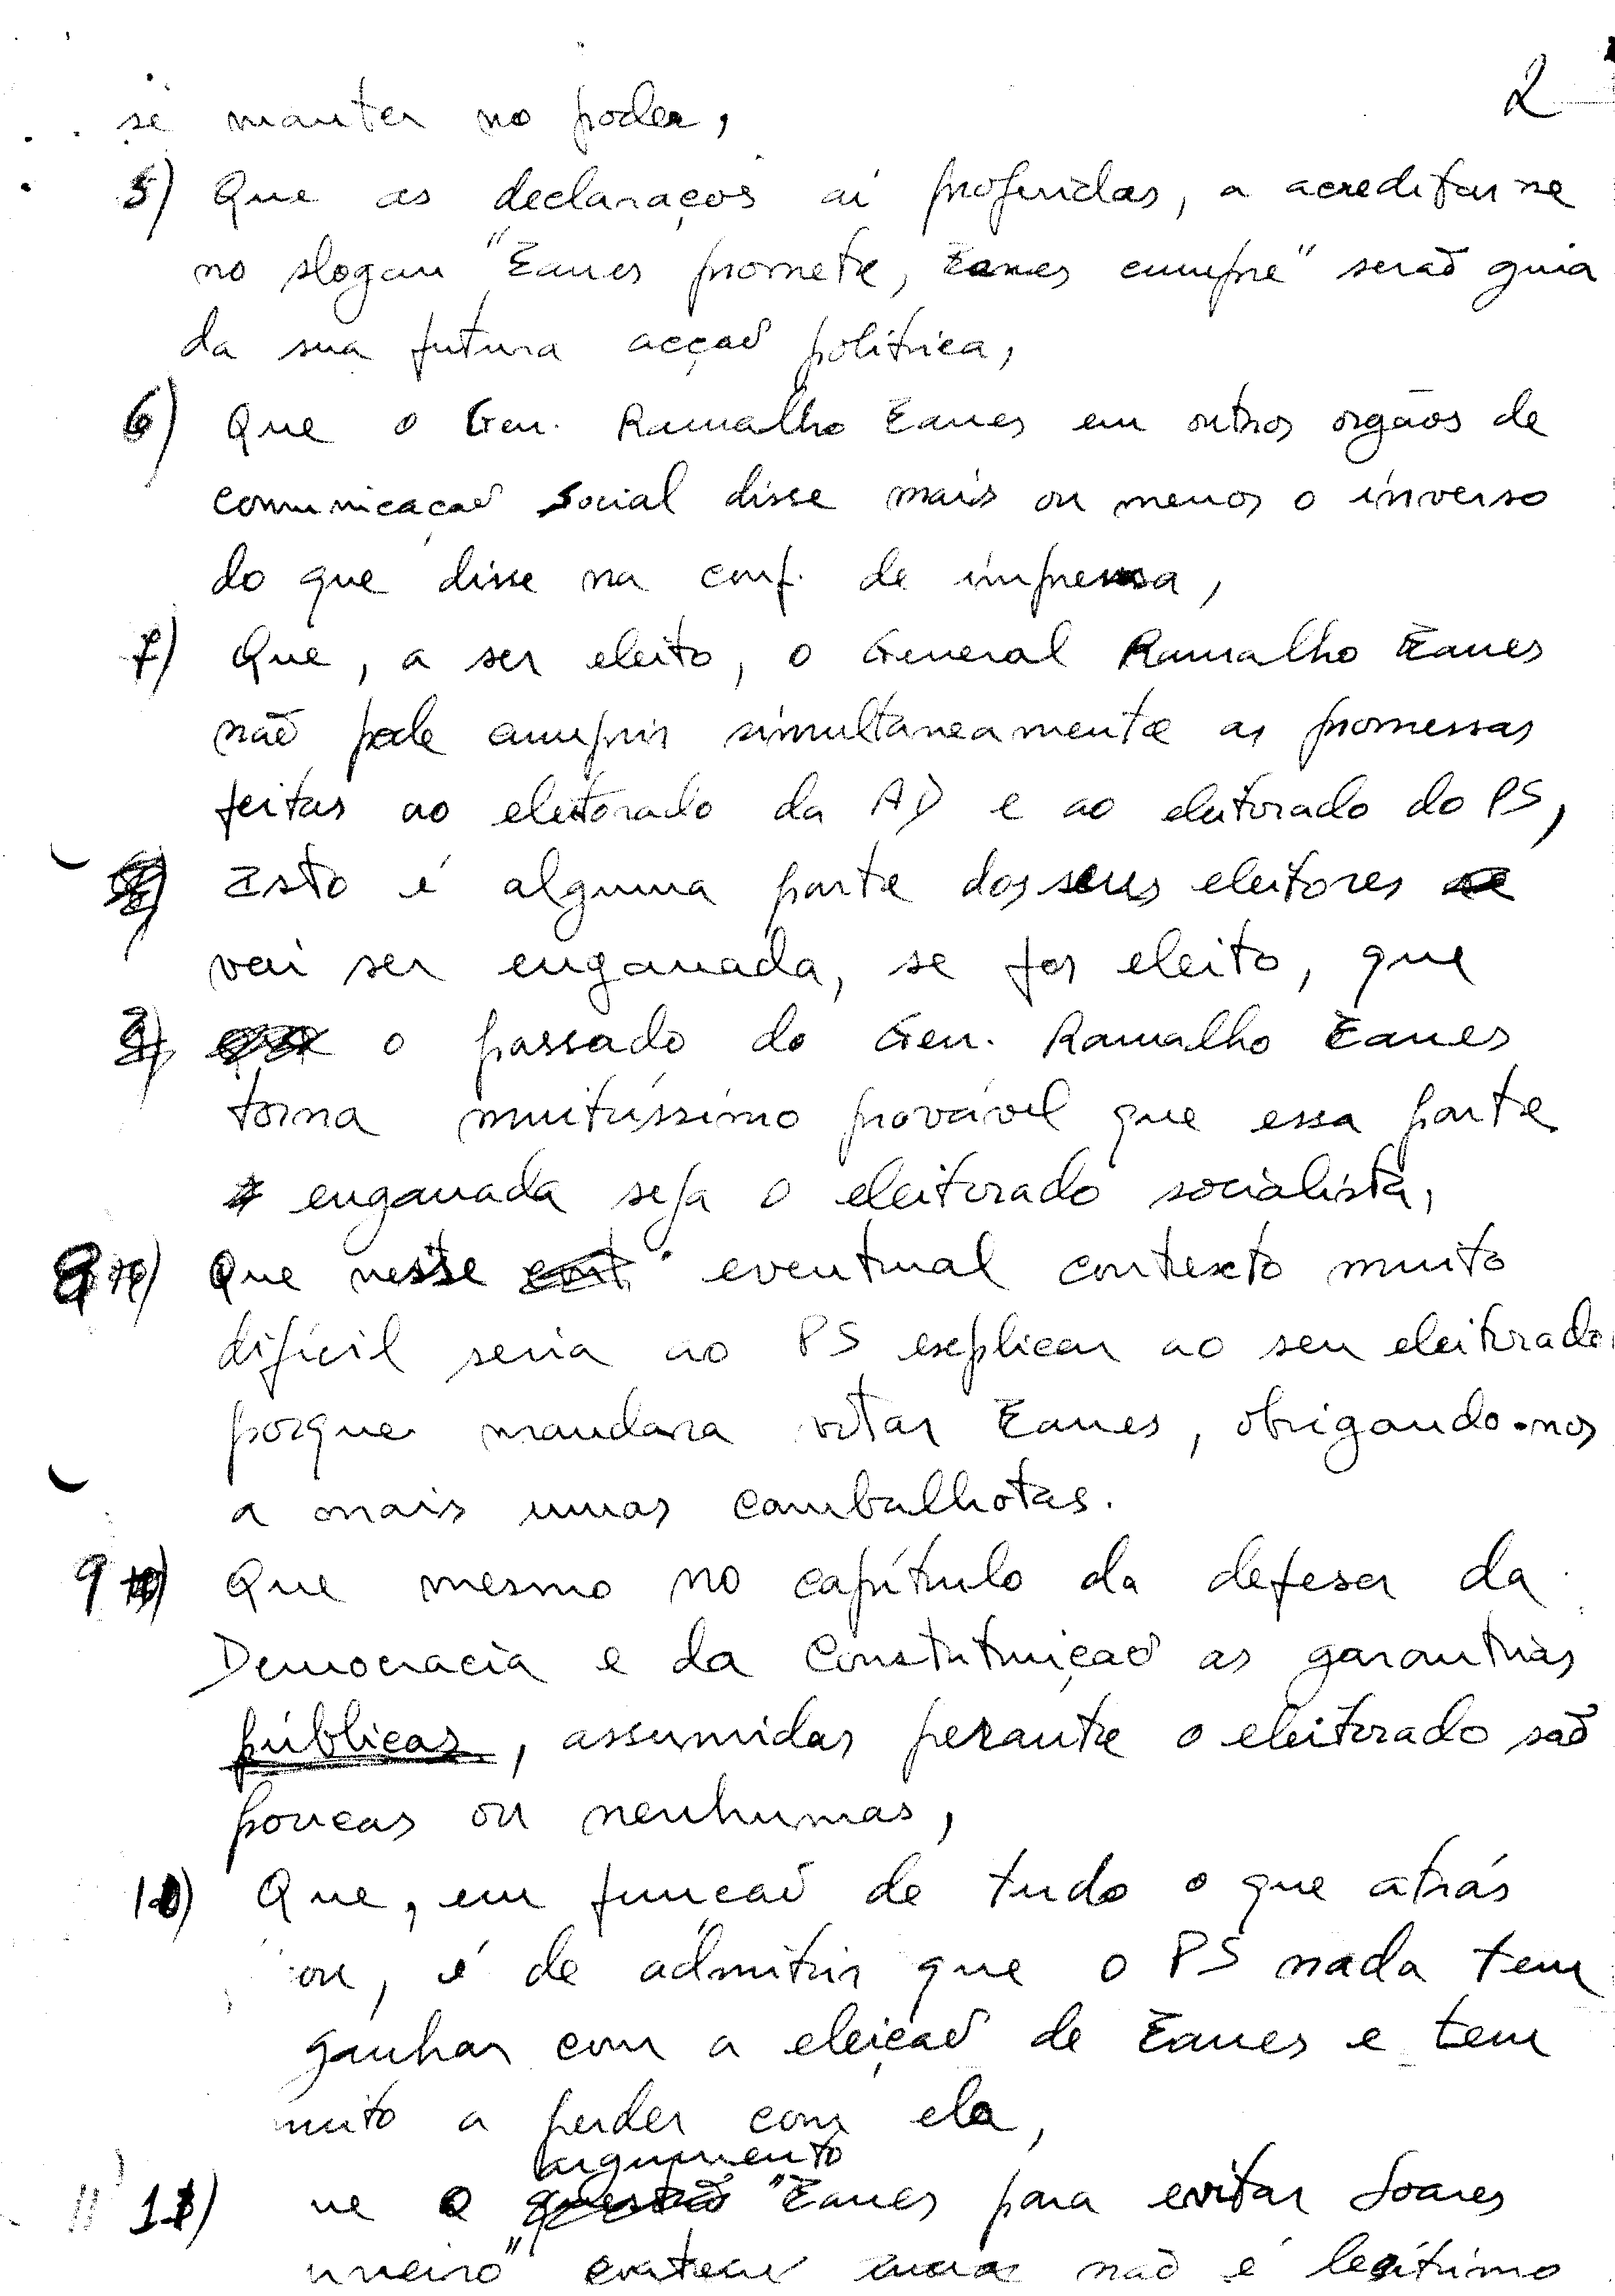 2
se manter no poder,
5) Que as declaraços aí proferidas, a acreditar-se
no slogan "Eanes promete, Eanes cumpre" serão guia
da sua futura acção política,
6) Que o Gen. Ramalho Eanes em outros orgãos de
comunicação social disse mais ou menos o inverso
do que disse na conf. de imprensa,
7) Que, a ser eleito, o General Ramalho Eanes
não pode cumprir simultaneamente as promessas
feitas ao eleitorado da AD e ao eleitorado do PS,
Isto é alguma parte dos seus eleitores
vai ser enganada, se for eleito, que
o passado do Gen. Ramalho Eanes
torna muitíssimo provável que essa parte
enganada seja o eleitorado socialista,
8) Que nesse eventual contexto muito
difícil seria ao PS explicar ao seu eleitorado
porque mandara votar Eanes, obrigando-nos
a mais umas cambalhotas.
9) Que mesmo no capítulo da defesa da
Democracia e da Constituição as garantias
públicas, assumidas perante o eleitorado são
poucas ou nenhumas,
10) Que, em função de tudo o que atrás
ou, é de admitir que o PS nada tem
ganhar com a eleição de Eanes e tem
muito a perder com ela,
argumento
11) ue o "Eanes para evitar Soares
neiro" não é legítimo